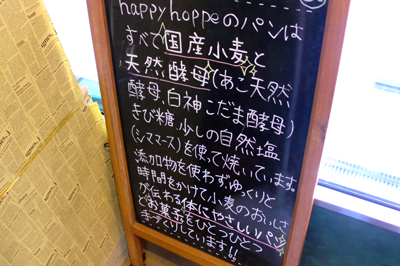 happy hoppeのパンは
すべて国産小麦と
天然酵母(あこ天然
酵母、白神こだま酵母)
きび糖、少しの自然塩
(シママース)を使って焼いています。
添加物を使わず、ゆっくりと
時間をかけて小麦のおいしさ
が伝わる体にやさしいパン
とお菓子をひとつひとつ
手づくりしています!!